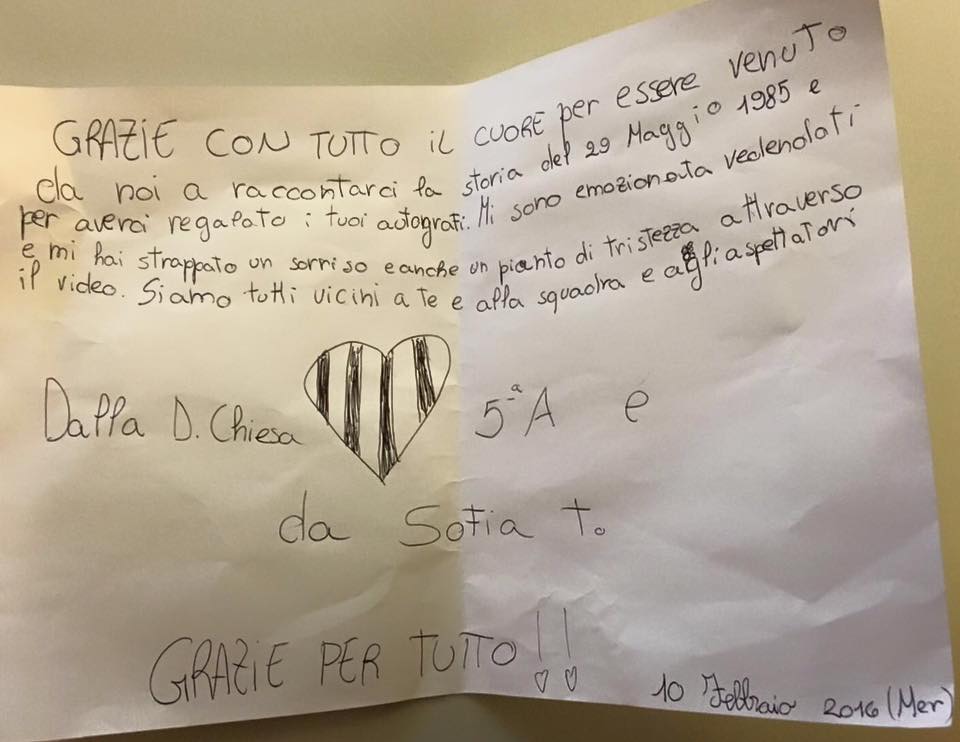 GRAZIE CON TUTTO il CUORE per essere venuto
da noi a raccontarci la storia del 29 Maggio 1985 e
per averci regalato i tuoi autografi. Mi sono emozionata vedendolati
e mi hai strappato un sorriso e anche un pianto di tristezza attraverso
il video. Siamo tutti vicini a te e alla squadra e agli aspettatori
Dalla D. Chiesa 5ª A e
da Sofia T.
GRAZIE PER TUTTO!!
10 Febbraio 2016 (Mer)